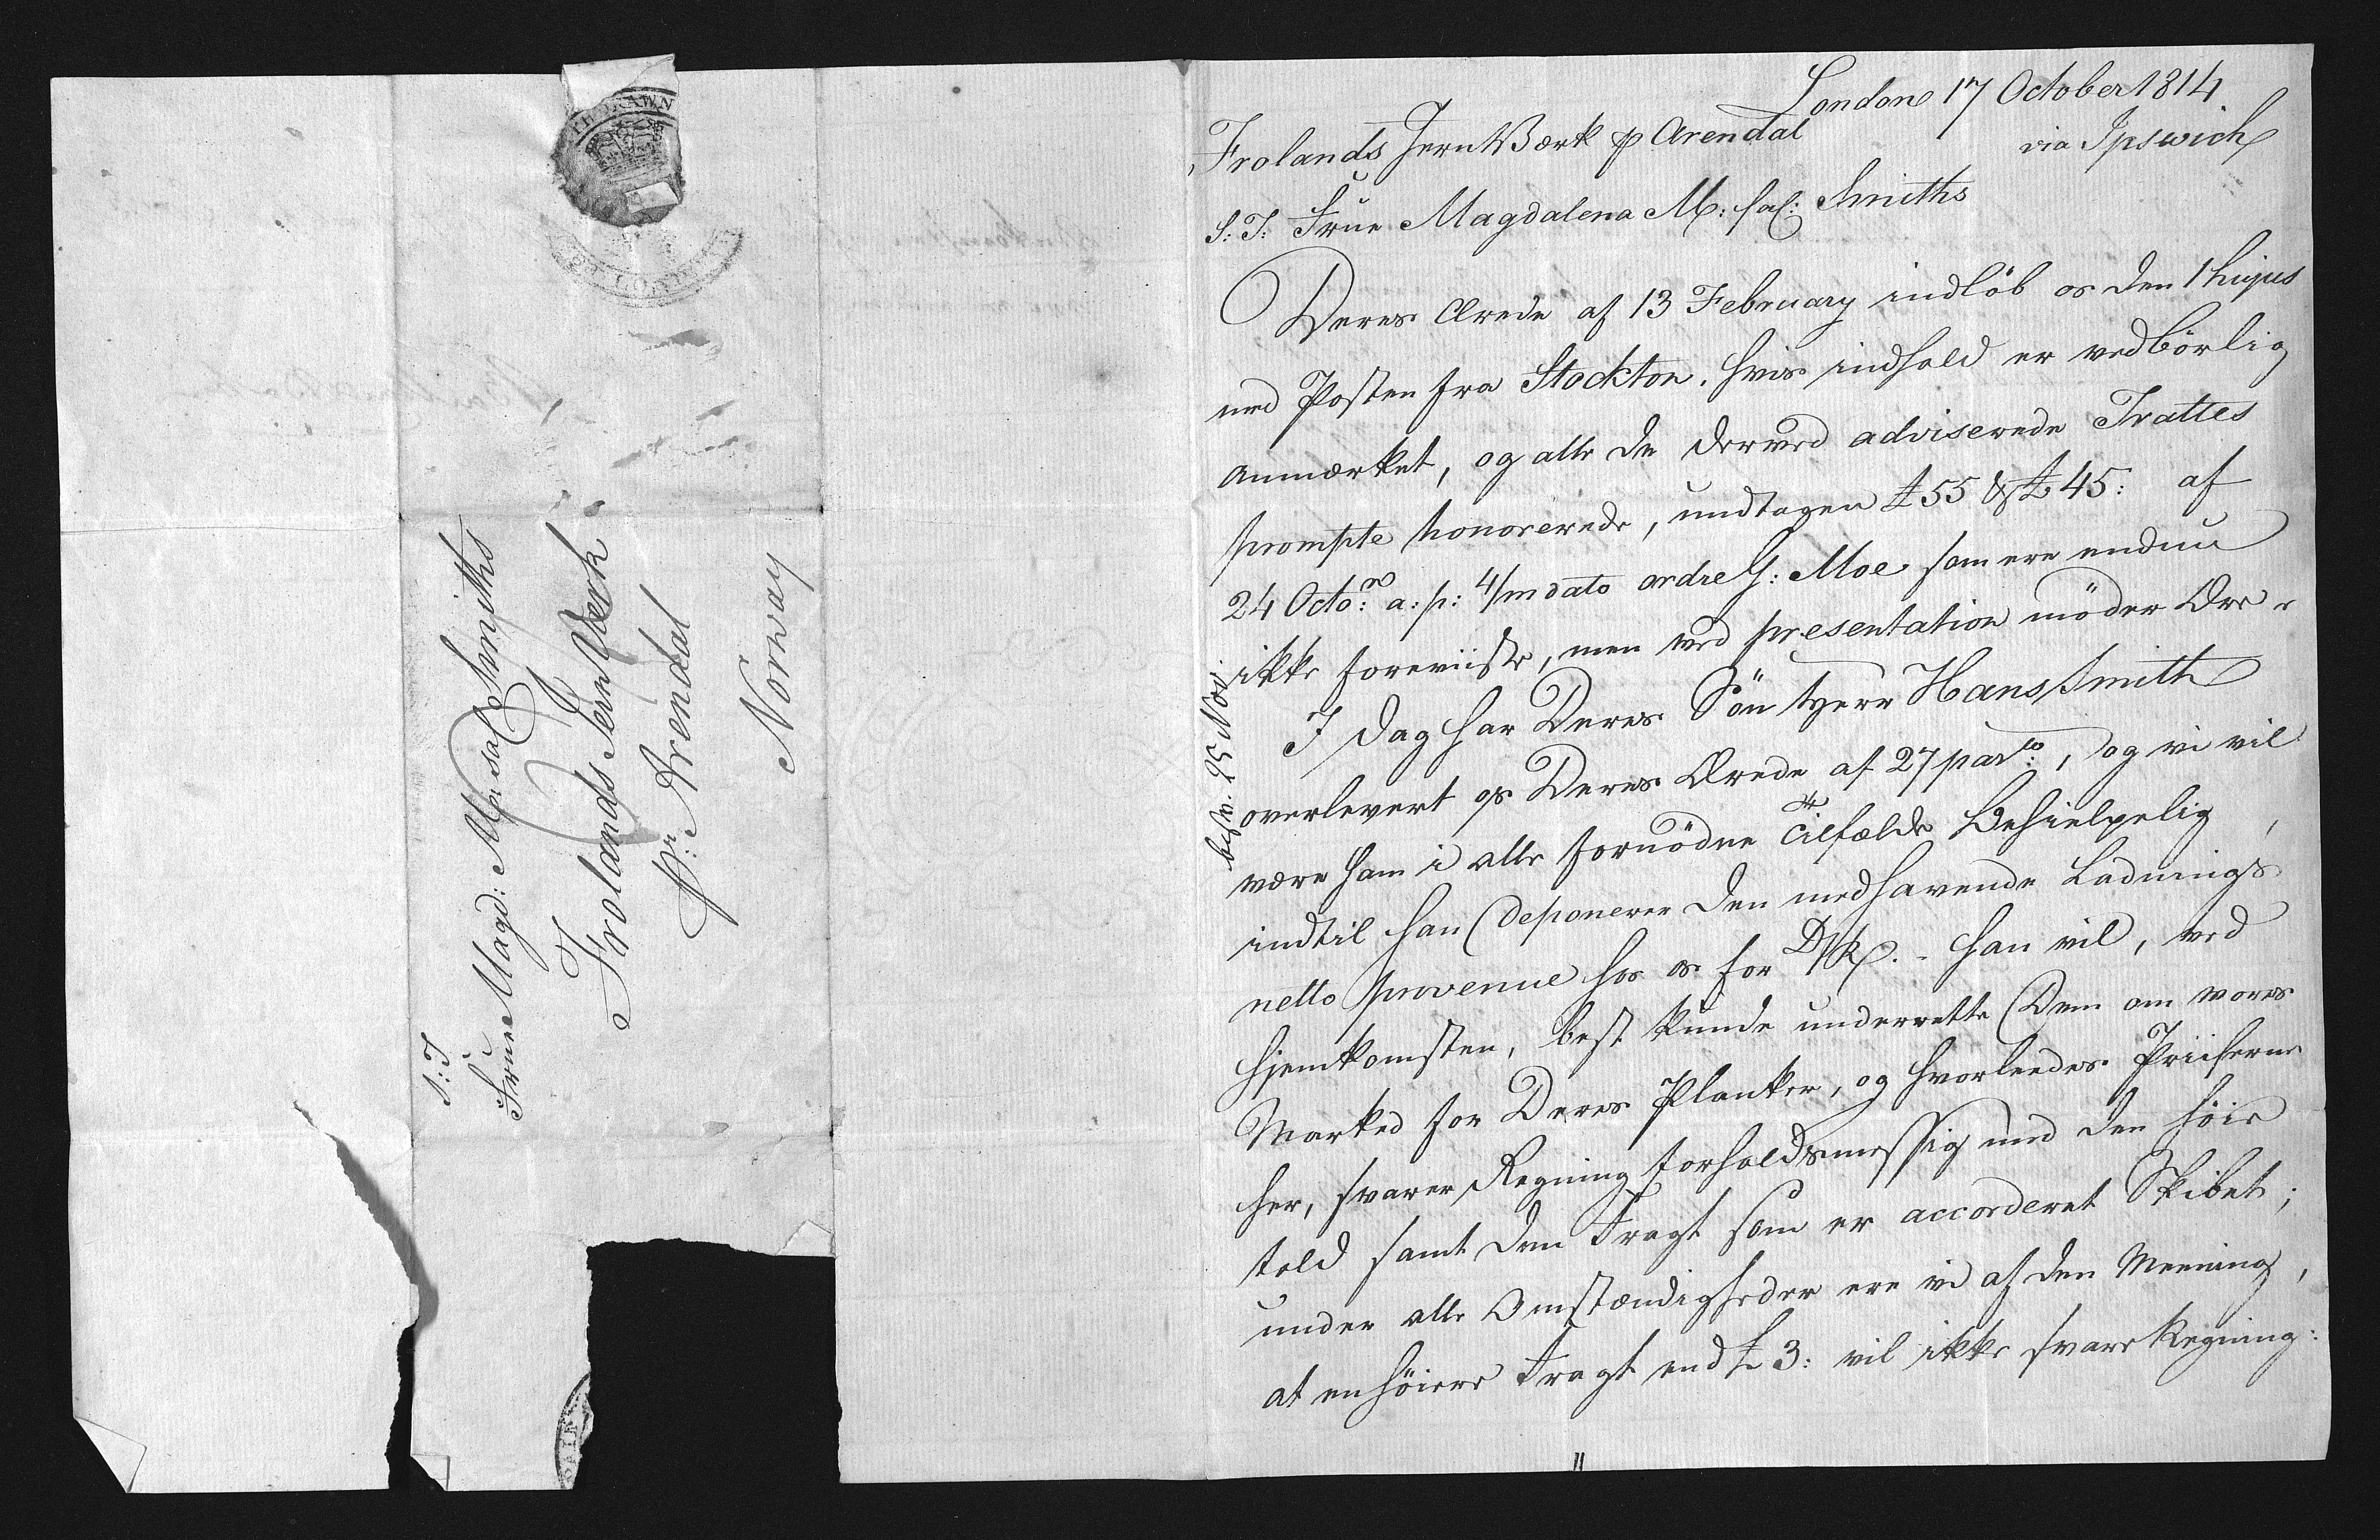 S: T
Frue Magd: M: sal Smiths
Frolands Jern Werk
pr: Arendal
Norway
London 17 October 1814
via Ipswich
Frolands Jern Værk p Arendal
S: T: Frue Magdalena M: sal: Smiths
Deres Ærede af 13 February indløb os den 1 hujus
med Posten fra Stockton, hvis indhold er vedbörlig
anmærket, og alle de derved adviserede Trattes
prompte honorerede, undtagen £ 55 & £ 45: af
24 Octo: a: p: 4/m dato ordre G: Moe som ere endnu
ikke foreviiste, men ved presentation möder Ære
I Dag har Deres Sön Herr Hans Smith
overlevert os Deres Ærede af 27 pas:to, og vi vil
være ham i alle fornödne Tilfælde behielpelig,
indtil han deponerer den medhavende Ladnings
netto provenue hos os for D/R. - han vil, ved
hjemkomsten, best kunde underrette Dem om vores
Marked for Deres Planker, og hvorleedes Priiserne
her, svarer Regning forholdsmessig med den höie
told samt den Fragt som er accorderet Skibet;
under alle Omstændigheder ere vi af den Meening,
at en höiere Fragt end £ 3: vil ikke svare Regning:
besv. 25 Nov